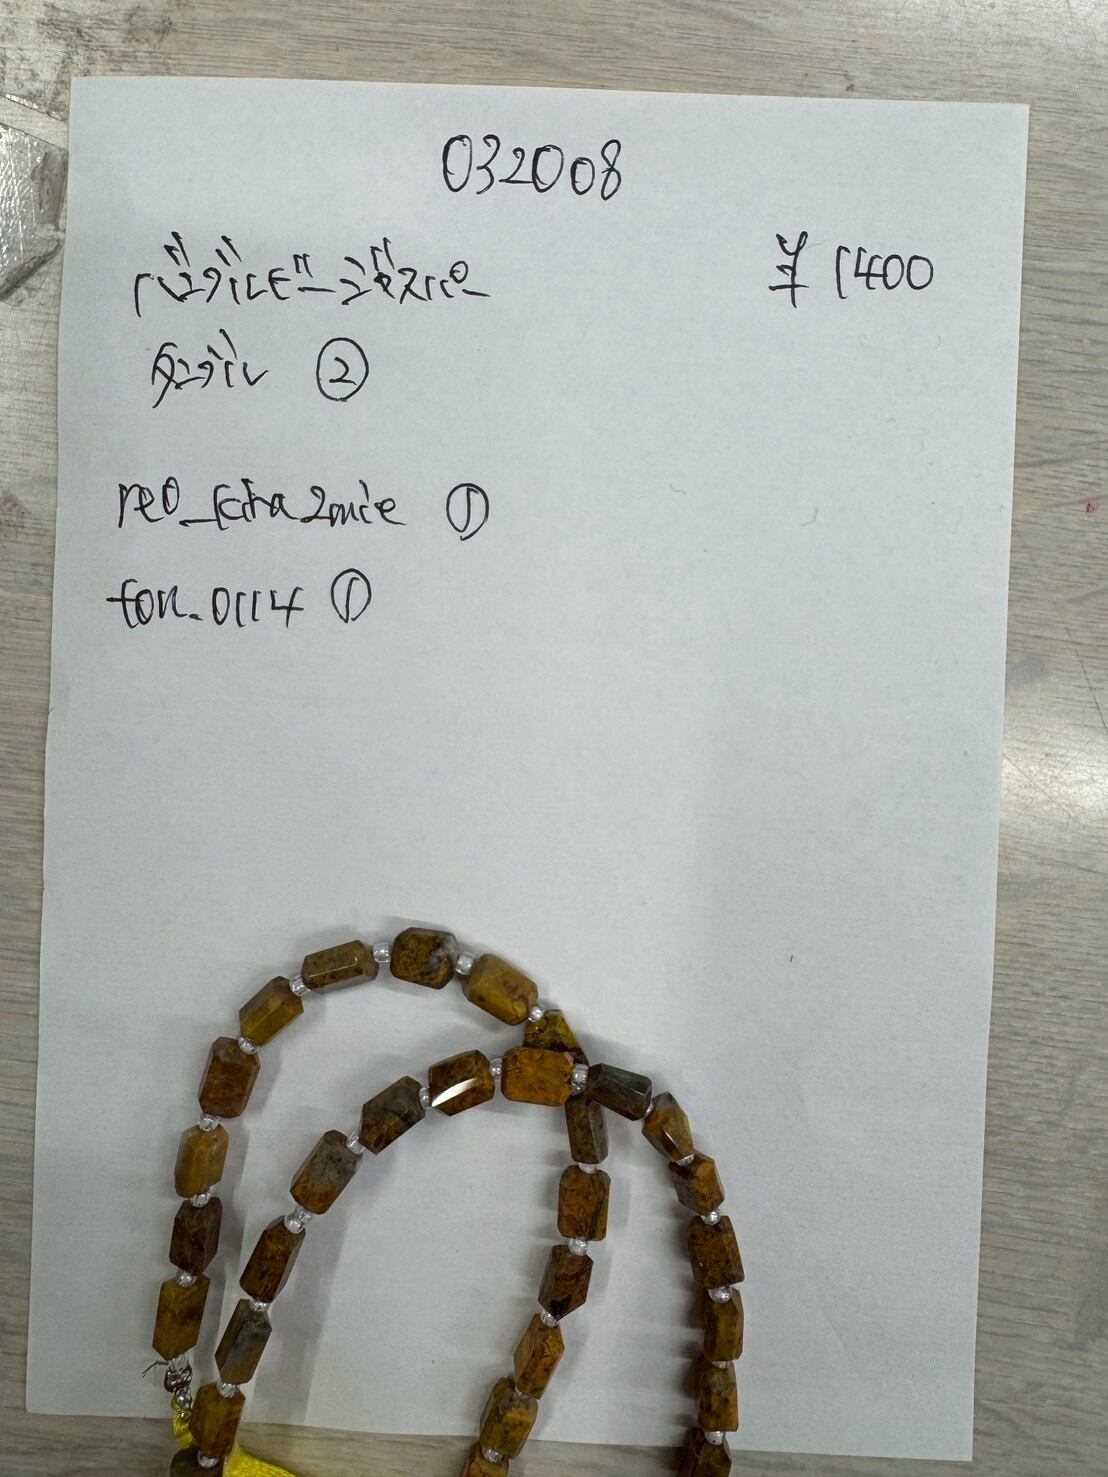 032008
バンブルビージャスパー ¥1400
タンブル ②
①
fon.0114 ①